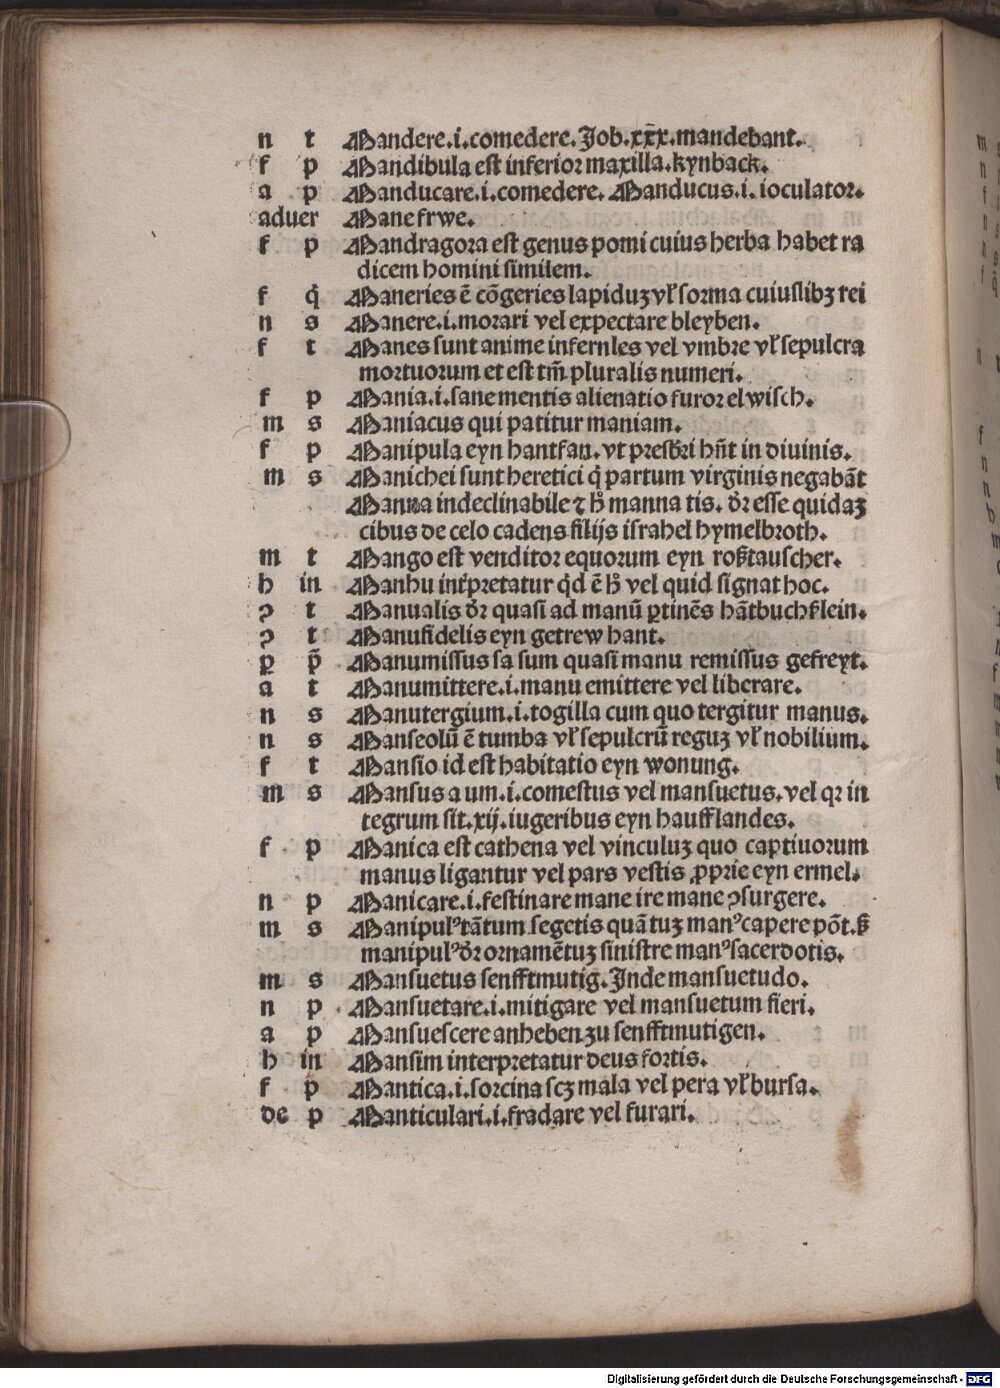 n t Mandere.i.comedere.Job.xxx̄.mandebant.
f p Mandibula est inferior maxilla.kynback.
a p Manducare.i.comedere. Manducus.i.ioculator.
aduer Mane frwe.
f p Mandragora est genus pomi cuius herba habet ra
dicem homini similem.
f q̄ Maneries ē cōgeries lapiduꝫ vł forma cuiuslibꝫ rei
n s Manere.i.morari vel expectare bleyben.
f t Manes sunt anime infernles vel vmbre vł sepulcra
mortuorum et est tm̄ pluralis numeri.
f p Mania.i.sane mentis alienatio furor elwisch.
m s Maniacus qui patitur maniam.
f p Manipula eyn hantfan.vt presbr̄i hn̄t in diuinis.
m s Manichei sunt heretici q̄ partum virginis negabāt
Manna indeclinabile ⁊ h̄ manna tis. dr̄ esse quidaꝫ
cibus de celo cadens filijs israhel hymelbroth.
m t Mango est venditor equorum eyn roßtauscher.
h in Manhu int̄pretatur qd̄ ē h̄ vel quid signat hoc.
ꝯ t Manualis dr̄ quasi ad manū ꝑtinēs hātbuchklein.
ꝯ t Manufidelis eyn getrew hant.
ꝑ p̄ Manumissus sa sum quasi manu remissus gefreyt.
a t Manumittere.i.manu emittere vel liberare.
n s Manutergium.i.togilla cum quo tergitur manus.
n s Manseolū ē tumba vł sepulcrū reguꝫ vł nobilium.
f t Mansio id est habitatio eyn wonung.
m s Mansus a um.i.comestus vel mansuetus.vel qꝛ in
tegrum sit.xij.iugeribus eyn haufflandes.
f p Manica est cathena vel vinculuꝫ quo captiuorum
manus ligantur vel pars vestis ꝓprie eyn ermel.
n p Manicare.i.festinare mane ire mane ꝯsurgere.
m s Manipulꝰ tātum segetis quātuꝫ manꝰ capere pōt.ß
manipulꝰ dr̄ ornamētuꝫ sinistre manꝰ sacerdotis.
m s Mansuetus senfftmutig.Inde mansuetudo.
n p Mansuetare.i.mitigare vel mansuetum fieri.
a p Mansuescere anheben zu senfftmutigen.
h in Mansim interpretatur deus fortis.
f p Mantica.i.sorcina scꝫ mala vel pera vł bursa.
de p Manticulari.i.fradare vel furari.
Digitalisierung gefördert durch die Deutsche Forschungsgemeinschaft - DFG